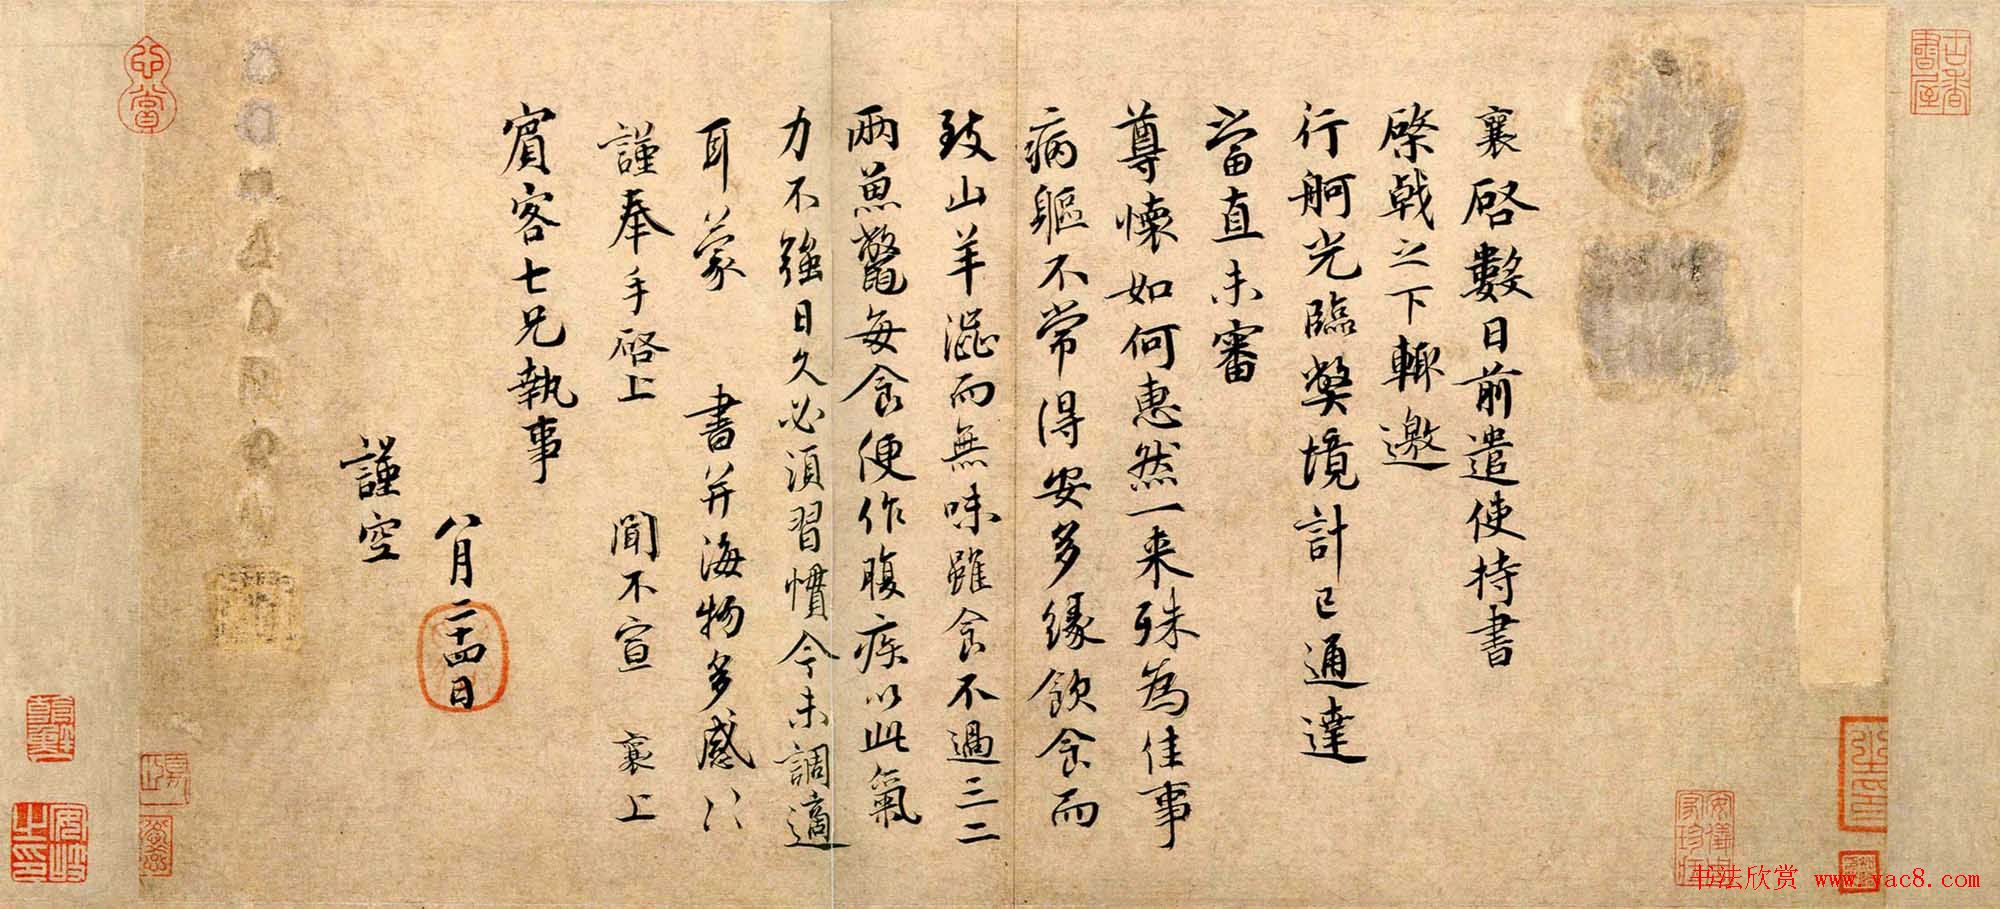 襄啓數日前遣使持書
棨戟之下輙邀
行舸光臨弊境計已通達
當直未審
尊懷如何惠然一来殊為佳事
病軀不常得安多緣飲食而
致山羊澁而無味雖食不過三二
兩魚鼈每食便作腹疾以此氣
力不強日久必須習慣今未調適
耳蒙 書并海物多感〻
謹奉手啓上 聞不宣 襄上
賓客七兄執事
八月二十四日
謹空
古香書屋
心賞
安儀周家珍藏
書法欣赏 www.yac8.com